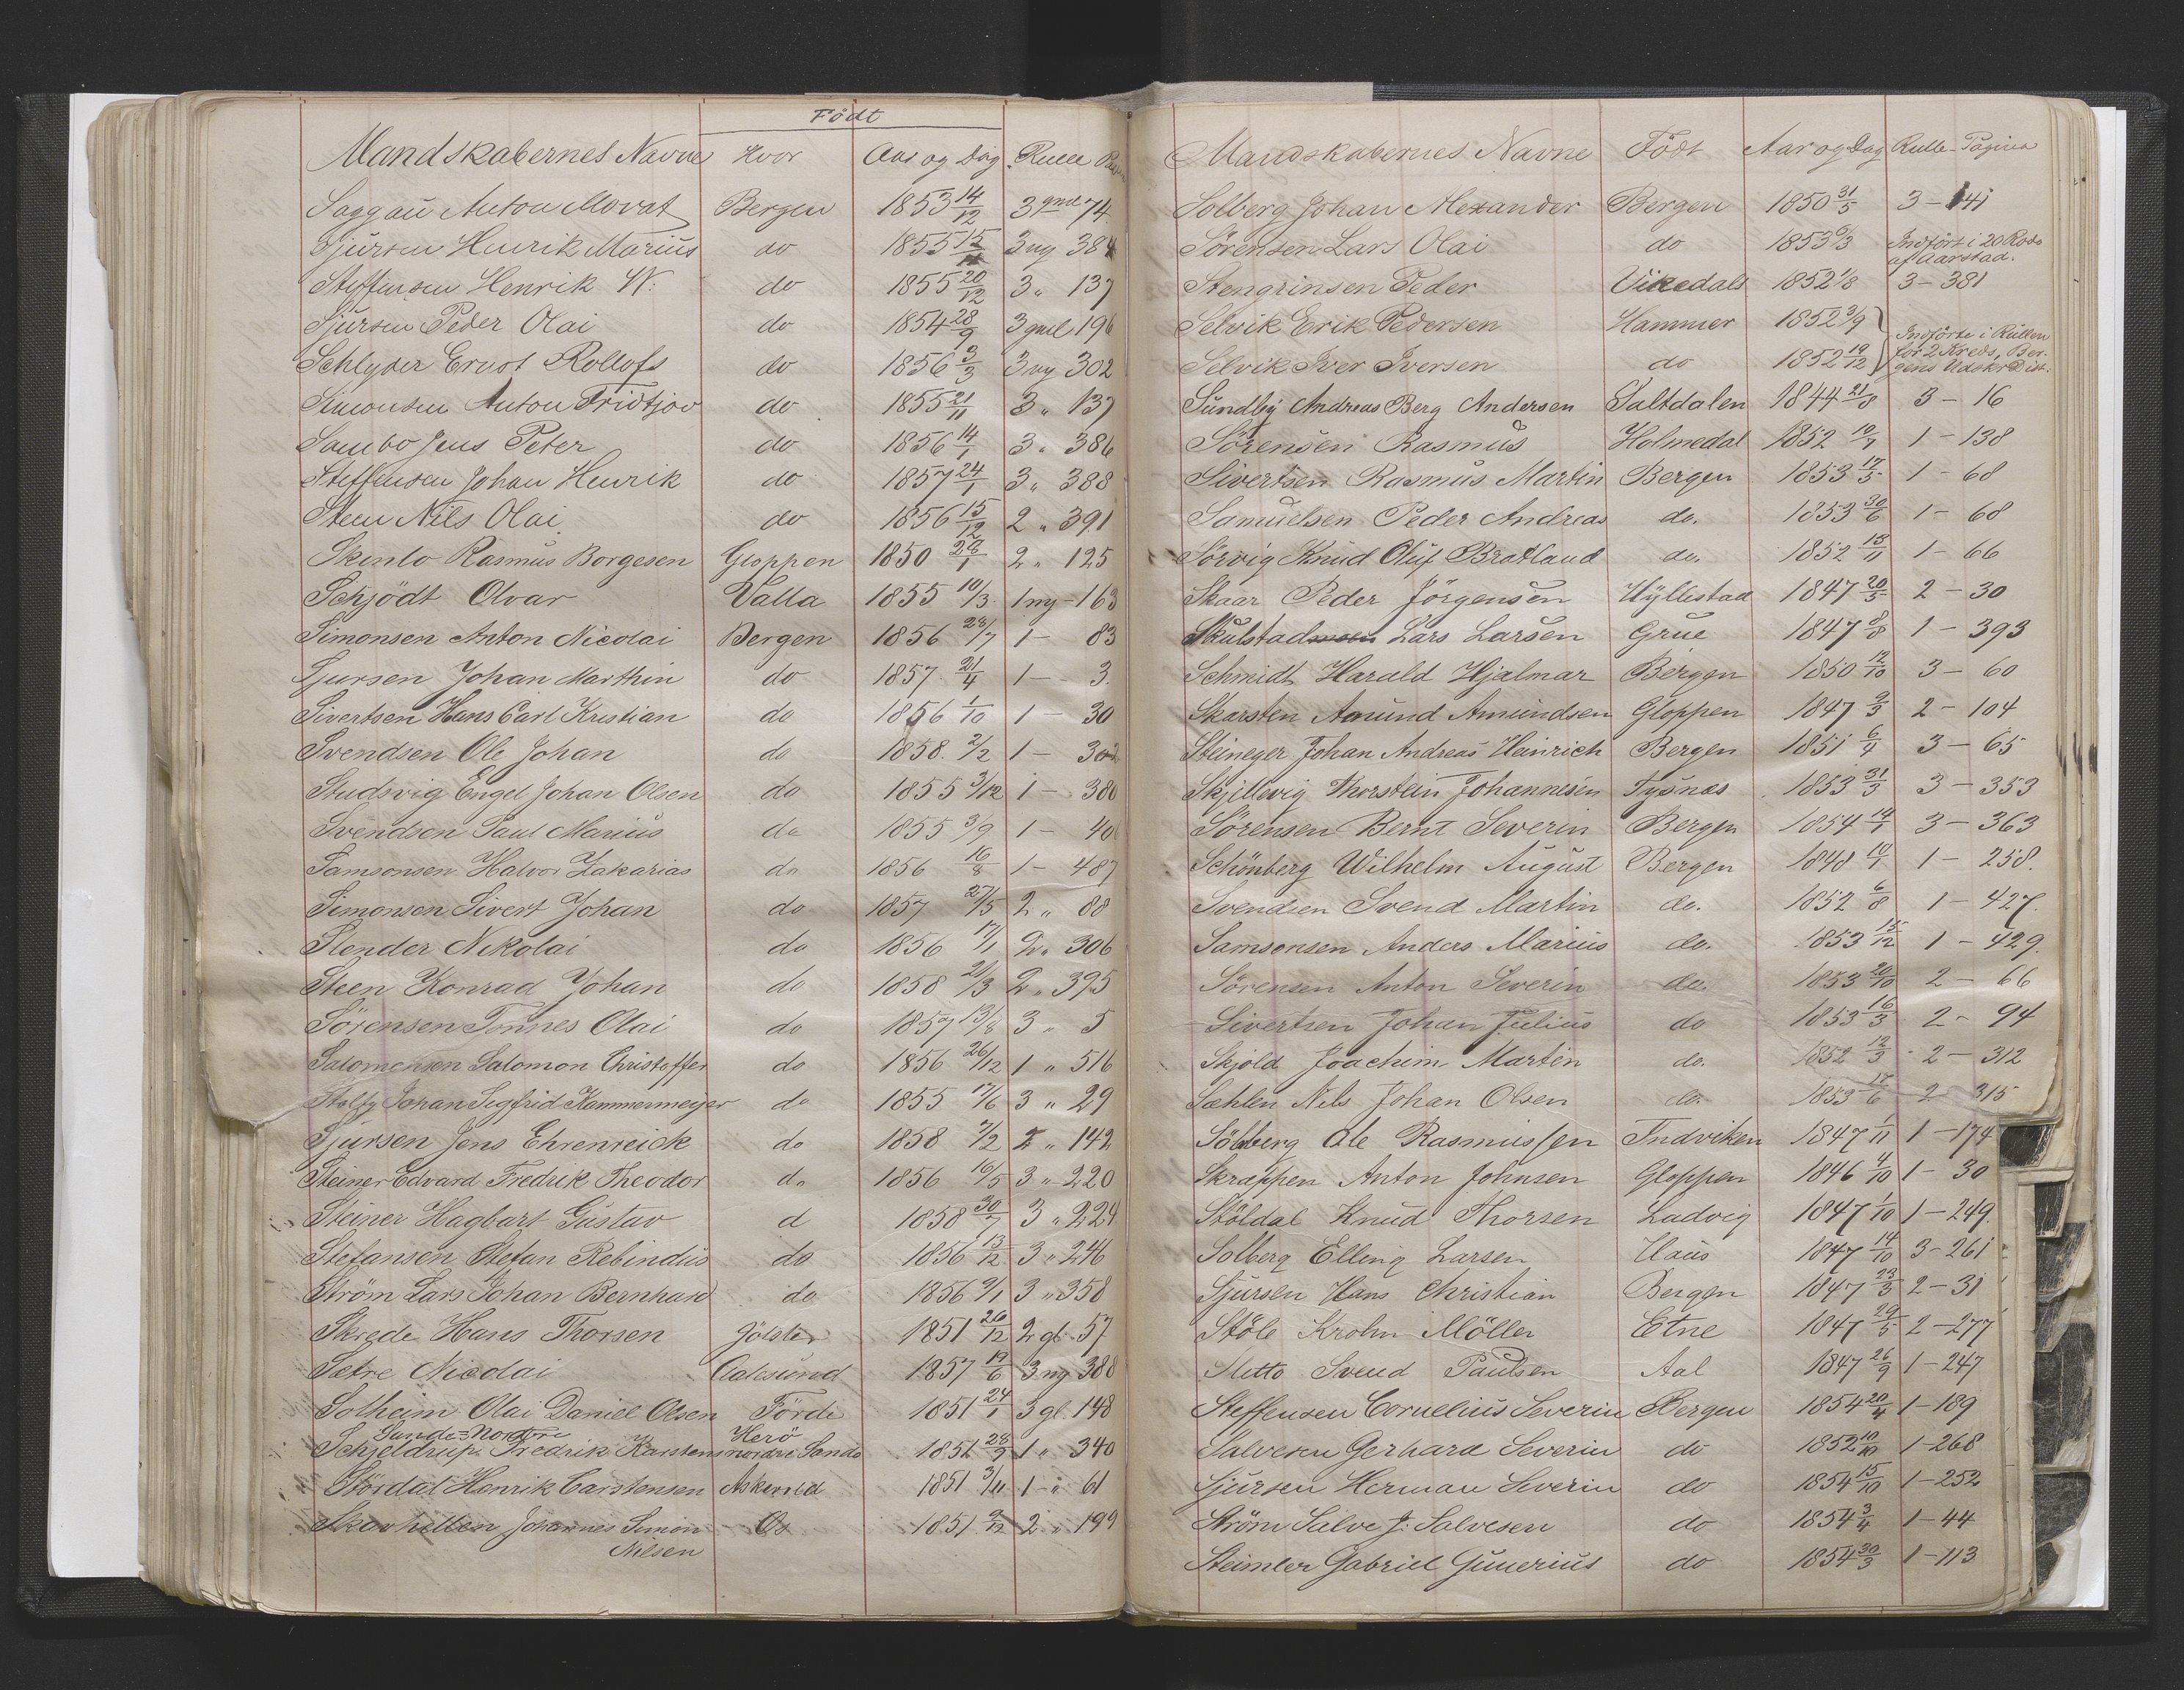 Födt
Mandskabernes Navne Hvor Aar og Dag Rulle
Saggau Anton Morat Bergen 1853 14/12 3 gml 74
Sjursen Henrik Marius do 1855 15/11 3 ny 384
Steffensen Henrik W. do 1855 20/12 3 " 137
Sjursen Peder Olai do 1854 28/9 3 gml 196
Schlyder Ernst Rollofs do 1856 3/3 3 ny 302
Simonsen Anton Fridtjov do 1855 21/11 3 " 137
Sambo Jens Peter do 1856 14/1 3 " 386
Steffensen Johan Henrik do 1857 24/1 3 " 388
Steen Nils Olai do 1856 15/12 2 " 391
Skenlo Rasmus Borgesen Gloppen 1850 28/1 2 " 125
Schjödt Olvar Valla 1855 10/3 1 ny - 163
Simonsen Anton Nicolai Bergen 1856 23/7 1 - 83
Sjursen Johan Marthin do 1857 21/4 1 - 3
Sivertsen Hans Carl Kristian do 1856 1/10 1 - 30
Svendsen Ole Johan do 1858 2/2 1 -
Studsvig Engel Johan Olsen do 1855 3/12 1 - 380
Svendsen Paul Marius do 1855 3/9 1 - 40
Samsonsen Halvor Zakarias do 1856 16/8 1 - 487
Simonsen Sivert Johan do 1857 27/5 2 " 88
Stender Nikolai do 1856 17/1 2 " 306
Steen Konrad Johan do 1858 21/3 2 " 395
Sörensen Tönnes Olai do 1857 13/8 3 " 5
Salomonsen Salomon Christoffer do 1856 26/12 1 " 516
Stoltz Johan Segfrid Kammermeyer do 1855 17/6 3 " 29
Sjursen Jens Ehrenreick do 1858 7/2 2 " 142
Steiner Edvard Fredrik Theodor do 1856 16/5 3 " 220
Steiner Hagbart Gustav d 1858 30/7 3 " 224
Stefansen Stefan Rebindus do 1856 13/12 3 " 246
Ström Lars Johan Bernhard do 1856 9/1 3 " 358
Skrede Hans Thorsen Jölster 1851 26/12 2 gl. 57
Setre Nicolai Aalesund 1857 19/6 3 ny 388
Solheim Olai Daniel Olsen Förde 1851 24/1 3 gl. 148
Sunde=Nordre Herö
Schjeldrup Fredrik Karstens nordre Sande 1851 28/9 1 " 340
Stördal Henrik Carstensen Askevold 1851 3/11 1 - " 61
Skarhellen Johannes Simon Os 1851 2/12 2 " 199
Nilsen
Mandskabernes Navne Födt Aar og Dag Rulle-Pagina
Solberg Johan Alexander Bergen 1850 31/5 3 - 141
Sörensen Lars Olai do 1853 6/3 Indfört i 20 Rode
af Aarstad.
Stengrinsen Peder Vikedals 1852 1/8 3 - 381
Selvik Erik Pedersen Hammer 1852 3/9 Indförte i Rullen
Selvik Iver Iversen do 1852 19/12 for 2 Kreds, Ber-
gens Udskr Dist.
Sundby Andreas Berg Andersen Saltdalen 1844 21/8 3 - 16
Sörensen Rasmus Holmedal 1852 10/7 1 - 138
Sivertsen Rasmus Martin Bergen 1853 17/5 1 - 68
Samuelsen Peder Andreas do. 1853 30/6 1 - 68
Sörvig Knud Oluf Bratland do. 1852 15/11 1 - 66
Skaar Peder Jörgensen Hyllestad 1847 20/5 2 - 30
Skulstad Lars Larsen Grue 1847 9/8 1 - 393
Schmidt Harald Hjalmar Bergen 1850 12/10 3 - 60
Skarsten Amund Amundsen Gloppen 1847 9/3 2 - 104
Steineger Johan Andreas Heinrich Bergen 1851 6/4 3 - 65
Skjellevig Thorstein Johannesen Tysnæs 1853 31/3 3 - 353
Sörensen Bernt Severin Bergen 1854 14/1 3 - 363
Schönberg Wilhelm August Bergen 1848 10/1 1 - 258.
Svendsen Svend Martin do. 1852 6/8 1 - 427.
Samsonsen Anders Marius do. 1853 15/12 1 - 429.
Sörensen Anton Severin do. 1853 20/10 2 - 66
Sivertsen Johan Julius do 1853 16/3 2 - 94
Skjold Joachim Martin do. 1852 12/3 2 - 312
Sæhlen Nils Johan Olsen do. 1853 17/6 2 315
Sölberg Ole Rasmussen Indviken 1847 1/11 1 - 174
Skrappen Anton Johnsen Gloppen 1846 4/10 1 - 30
Stöldal Knud Thorsen Ladvig 1847 1/10 1 - 249.
Solberg Elling Larsen Haus 1847 14/10 3 - 261
Sjursen Hans Christian Bergen 1847 23/3 2 - 31
Stöle Krohn Möller Etne 1847 29/5 2 - 277
Sletto Svend Paulsen Aal 1847 26/9 1 - 247
Steffensen Cornelius Severin Bergen 1854 20/4 1 - 189
Salvesen Gerhard Severin do 1852 10/10 1 - 268
Sjursen Herman Severin do 1854 15/10 1 - 252
Ström Salve J: Salvesen do 1854 3/4 1 - 44
Steimler Gabriel Gunerius do 1854 30/3 1 - 113